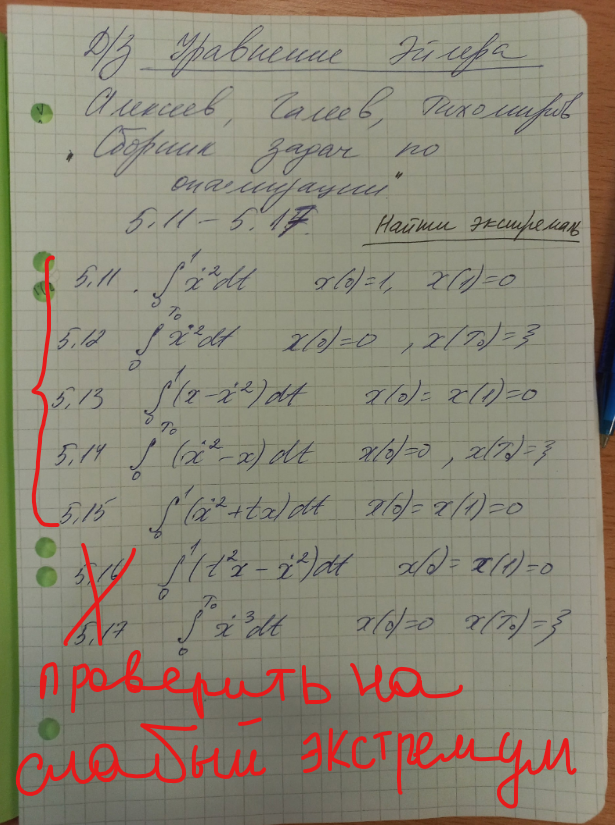 Д/З Уравнение Эйлера
Алексеев, Галеев, Тихомиров
"Сборник задач по
оптимизации"
5.11 – 5.17 Найти экстремаль
5.11 . ∫₀¹ ẋ² dt x(0)=1, x(1)=0
5.12 ∫₀^T₀ ẋ² dt x(0)=0 , x(T₀)=ξ
5.13 ∫₀¹ (x-ẋ²) dt x(0)= x(1)=0
5.14 ∫₀^T₀ (ẋ²-x) dt x(0)=0 , x(T₀)=ξ
5.15 ∫₀¹ (ẋ²+tx) dt x(0)= x(1)=0
5.16 ∫₀¹ (t²x-ẋ²) dt x(0)= x(1)=0
5.17 ∫₀^T₀ ẋ³ dt x(0)=0 x(T₀)=ξ
проверить на
слабый экстремум